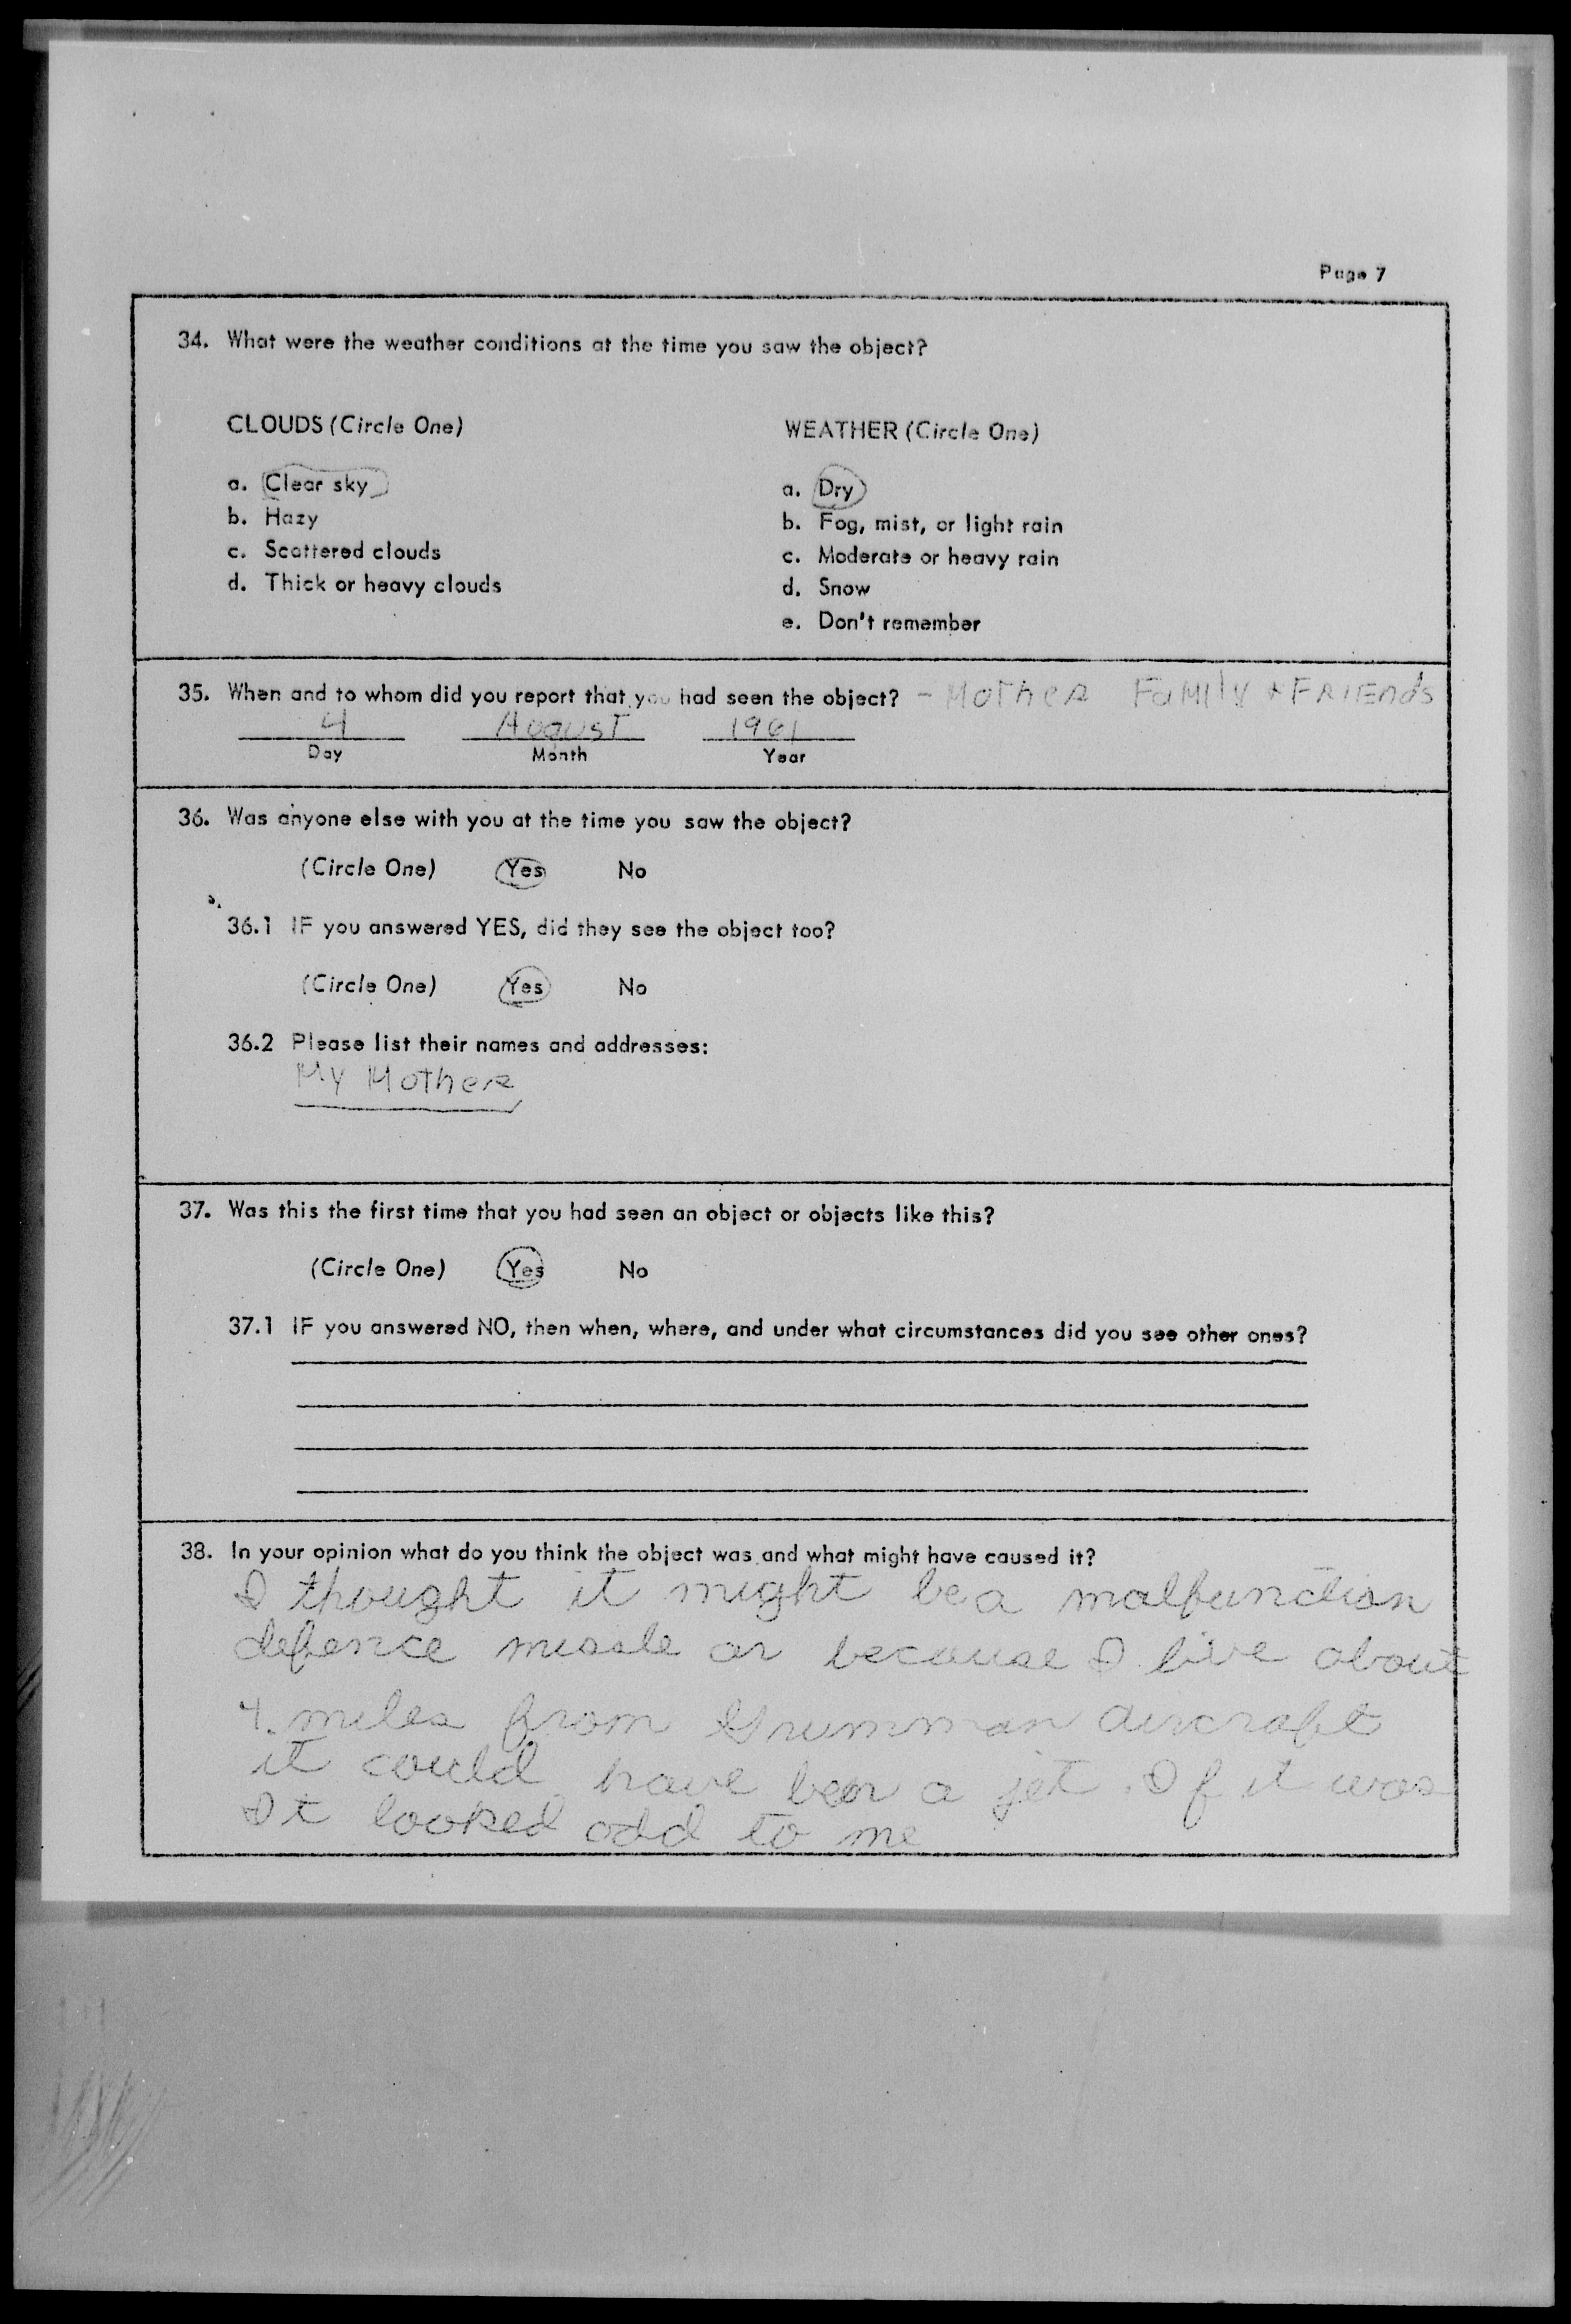 Page 7
34. What were the weather conditions at the time you saw the object?
CLOUDS (Circle One)
a. Clear sky
b. Hazy
c. Scattered clouds
d. Thick or heavy clouds
WEATHER (Circle One)
a. Dry
b. Fog, mist, or light rain
c. Moderate or heavy rain
d. Snow
e. Don't remember
35. When and to whom did you report that you had seen the object? - Mother Family & Friends
4 August 1961
Day Month Year
36. Was anyone else with you at the time you saw the object?
(Circle One) Yes No
36.1 IF you answered YES, did they see the object too?
(Circle One) Yes No
36.2 Please list their names and addresses:
My Mother
37. Was this the first time that you had seen an object or objects like this?
(Circle One) Yes No
37.1 IF you answered NO, then when, where, and under what circumstances did you see other ones?
38. In your opinion what do you think the object was and what might have caused it?
I thought it might be a malfunction
defence missle or because I live about
4. miles from Grumman aircraft
it could have been a jet. If it was
It looked odd to me